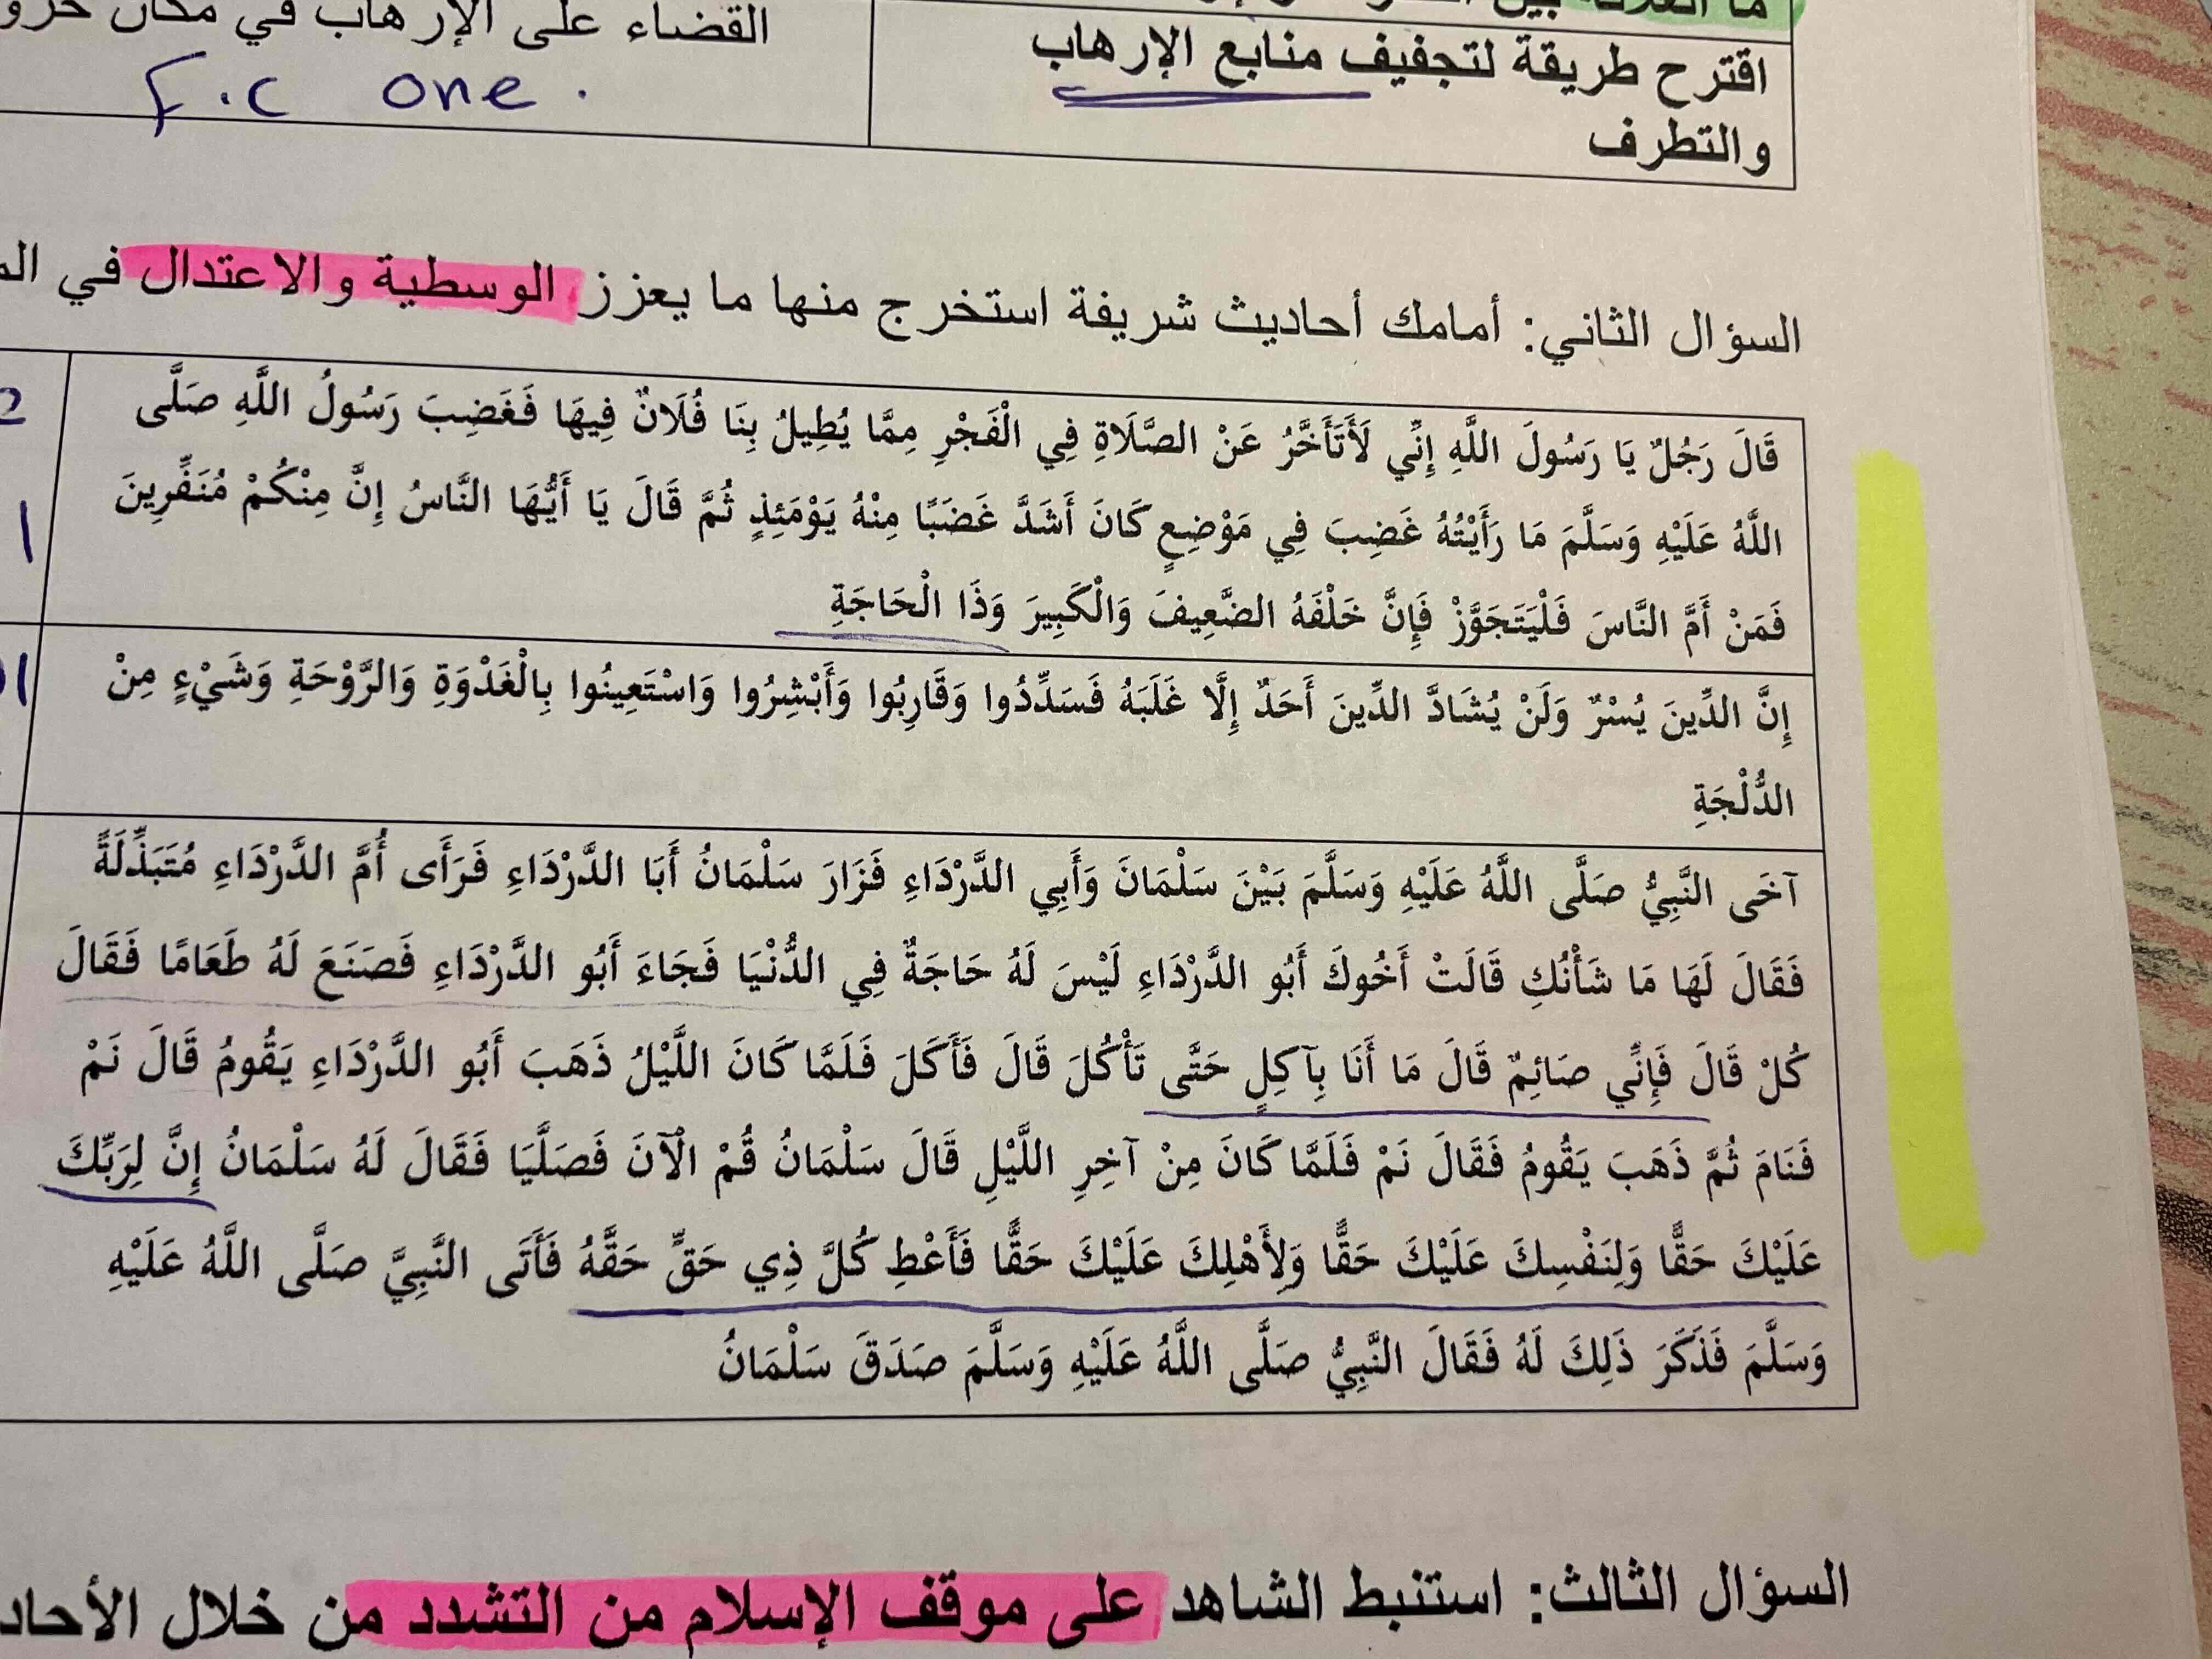 القضاء على الإرهاب في مكان
F.C one.
اقترح طريقة لتجفيف منابع الإرهاب
والتطرف
السؤال الثاني: أمامك أحاديث شريفة استخرج منها ما يعزز الوسطية والاعتدال في
قَالَ رَجُلٌ يَا رَسُولَ اللَّهِ إِنِّي لَأَتَأَخَّرُ عَنْ الصَّلَاةِ فِي الْفَجْرِ مِمَّا يُطِيلُ بِنَا فُلَانٌ فِيهَا فَغَضِبَ رَسُولُ اللَّهِ صَلَّى
اللَّهُ عَلَيْهِ وَسَلَّمَ مَا رَأَيْتُهُ غَضِبَ فِي مَوْضِعٍ كَانَ أَشَدَّ غَضَبًا مِنْهُ يَوْمَئِذٍ ثُمَّ قَالَ يَا أَيُّهَا النَّاسُ إِنَّ مِنْكُمْ مُنَفِّرِينَ
فَمَنْ أَمَّ النَّاسَ فَلْيَتَجَوَّزْ فَإِنَّ خَلْفَهُ الضَّعِيفَ وَالْكَبِيرَ وَذَا الْحَاجَةِ
إِنَّ الدِّينَ يُسْرٌ وَلَنْ يُشَادَّ الدِّينَ أَحَدٌ إِلَّا غَلَبَهُ فَسَدِّدُوا وَقَارِبُوا وَأَبْشِرُوا وَاسْتَعِينُوا بِالْغَدْوَةِ وَالرَّوْحَةِ وَشَيْءٍ مِنْ
الدُّلْجَةِ
آخَى النَّبِيُّ صَلَّى اللَّهُ عَلَيْهِ وَسَلَّمَ بَيْنَ سَلْمَانَ وَأَبِي الدَّرْدَاءِ فَزَارَ سَلْمَانُ أَبَا الدَّرْدَاءِ فَرَأَى أُمَّ الدَّرْدَاءِ مُتَبَذِّلَةً
فَقَالَ لَهَا مَا شَأْنُكِ قَالَتْ أَخُوكَ أَبُو الدَّرْدَاءِ لَيْسَ لَهُ حَاجَةٌ فِي الدُّنْيَا فَجَاءَ أَبُو الدَّرْدَاءِ فَصَنَعَ لَهُ طَعَامًا فَقَالَ
كُلْ قَالَ فَإِنِّي صَائِمٌ قَالَ مَا أَنَا بِآكِلٍ حَتَّى تَأْكُلَ قَالَ فَأَكَلَ فَلَمَّا كَانَ اللَّيْلُ ذَهَبَ أَبُو الدَّرْدَاءِ يَقُومُ قَالَ نَمْ
فَنَامَ ثُمَّ ذَهَبَ يَقُومُ فَقَالَ نَمْ فَلَمَّا كَانَ مِنْ آخِرِ اللَّيْلِ قَالَ سَلْمَانُ قُمْ الْآنَ فَصَلَّيَا فَقَالَ لَهُ سَلْمَانُ إِنَّ لِرَبِّكَ
عَلَيْكَ حَقًّا وَلِنَفْسِكَ عَلَيْكَ حَقًّا وَلِأَهْلِكَ عَلَيْكَ حَقًّا فَأَعْطِ كُلَّ ذِي حَقٍّ حَقَّهُ فَأَتَى النَّبِيَّ صَلَّى اللَّهُ عَلَيْهِ
وَسَلَّمَ فَذَكَرَ ذَلِكَ لَهُ فَقَالَ النَّبِيُّ صَلَّى اللَّهُ عَلَيْهِ وَسَلَّمَ صَدَقَ سَلْمَانُ
السؤال الثالث: استنبط الشاهد على موقف الإسلام من التشدد من خلال